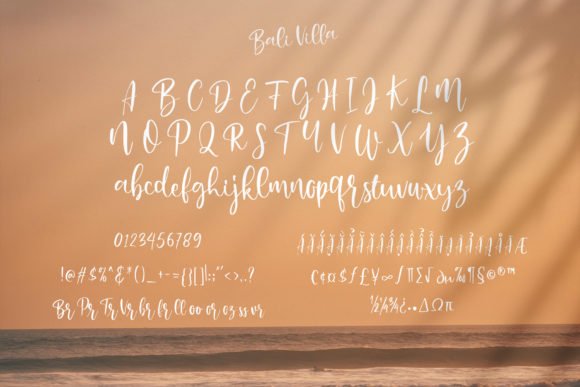 Bali Villa
A B C D E F G H I J K L M
N O P Q R S T U V W X Y Z
abcdefghijklmnopqrstuvwxyz
0123456789
!@#$%^&*()_+-={}[]|:;"<>,.?
Br Pr Tr Vr br fr ll oo or oz ss vr
¢¤$ƒ£¥∞∫∏∑√∂µ‰¶§©®™
½¼¾¿..∆Ωπ